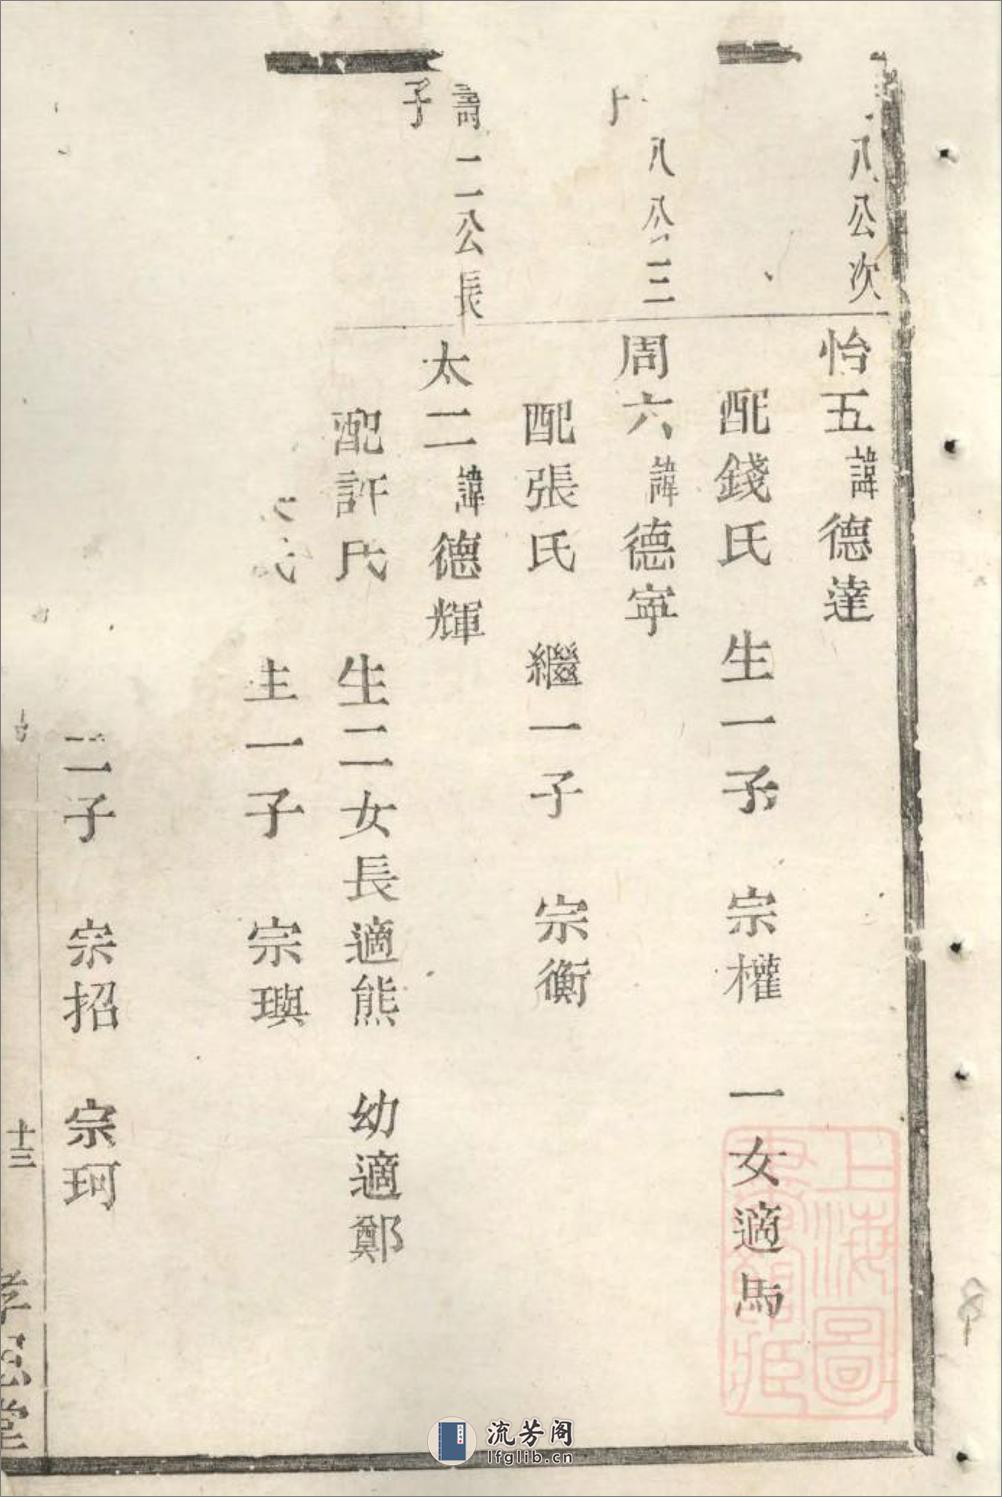 八公次
怡五諱德達
配錢氏 生一子 宗權 一女適馬
八公三
周六諱德寕
配張氏 繼一子 宗衡
二公長
子
太二諱德輝
配許氏 生二女長適熊 幼適鄭
氏 生一子 宗璵
二子 宗招 宗珂
十三
上海圖
書館藏
流芳阁
lfglib.cn